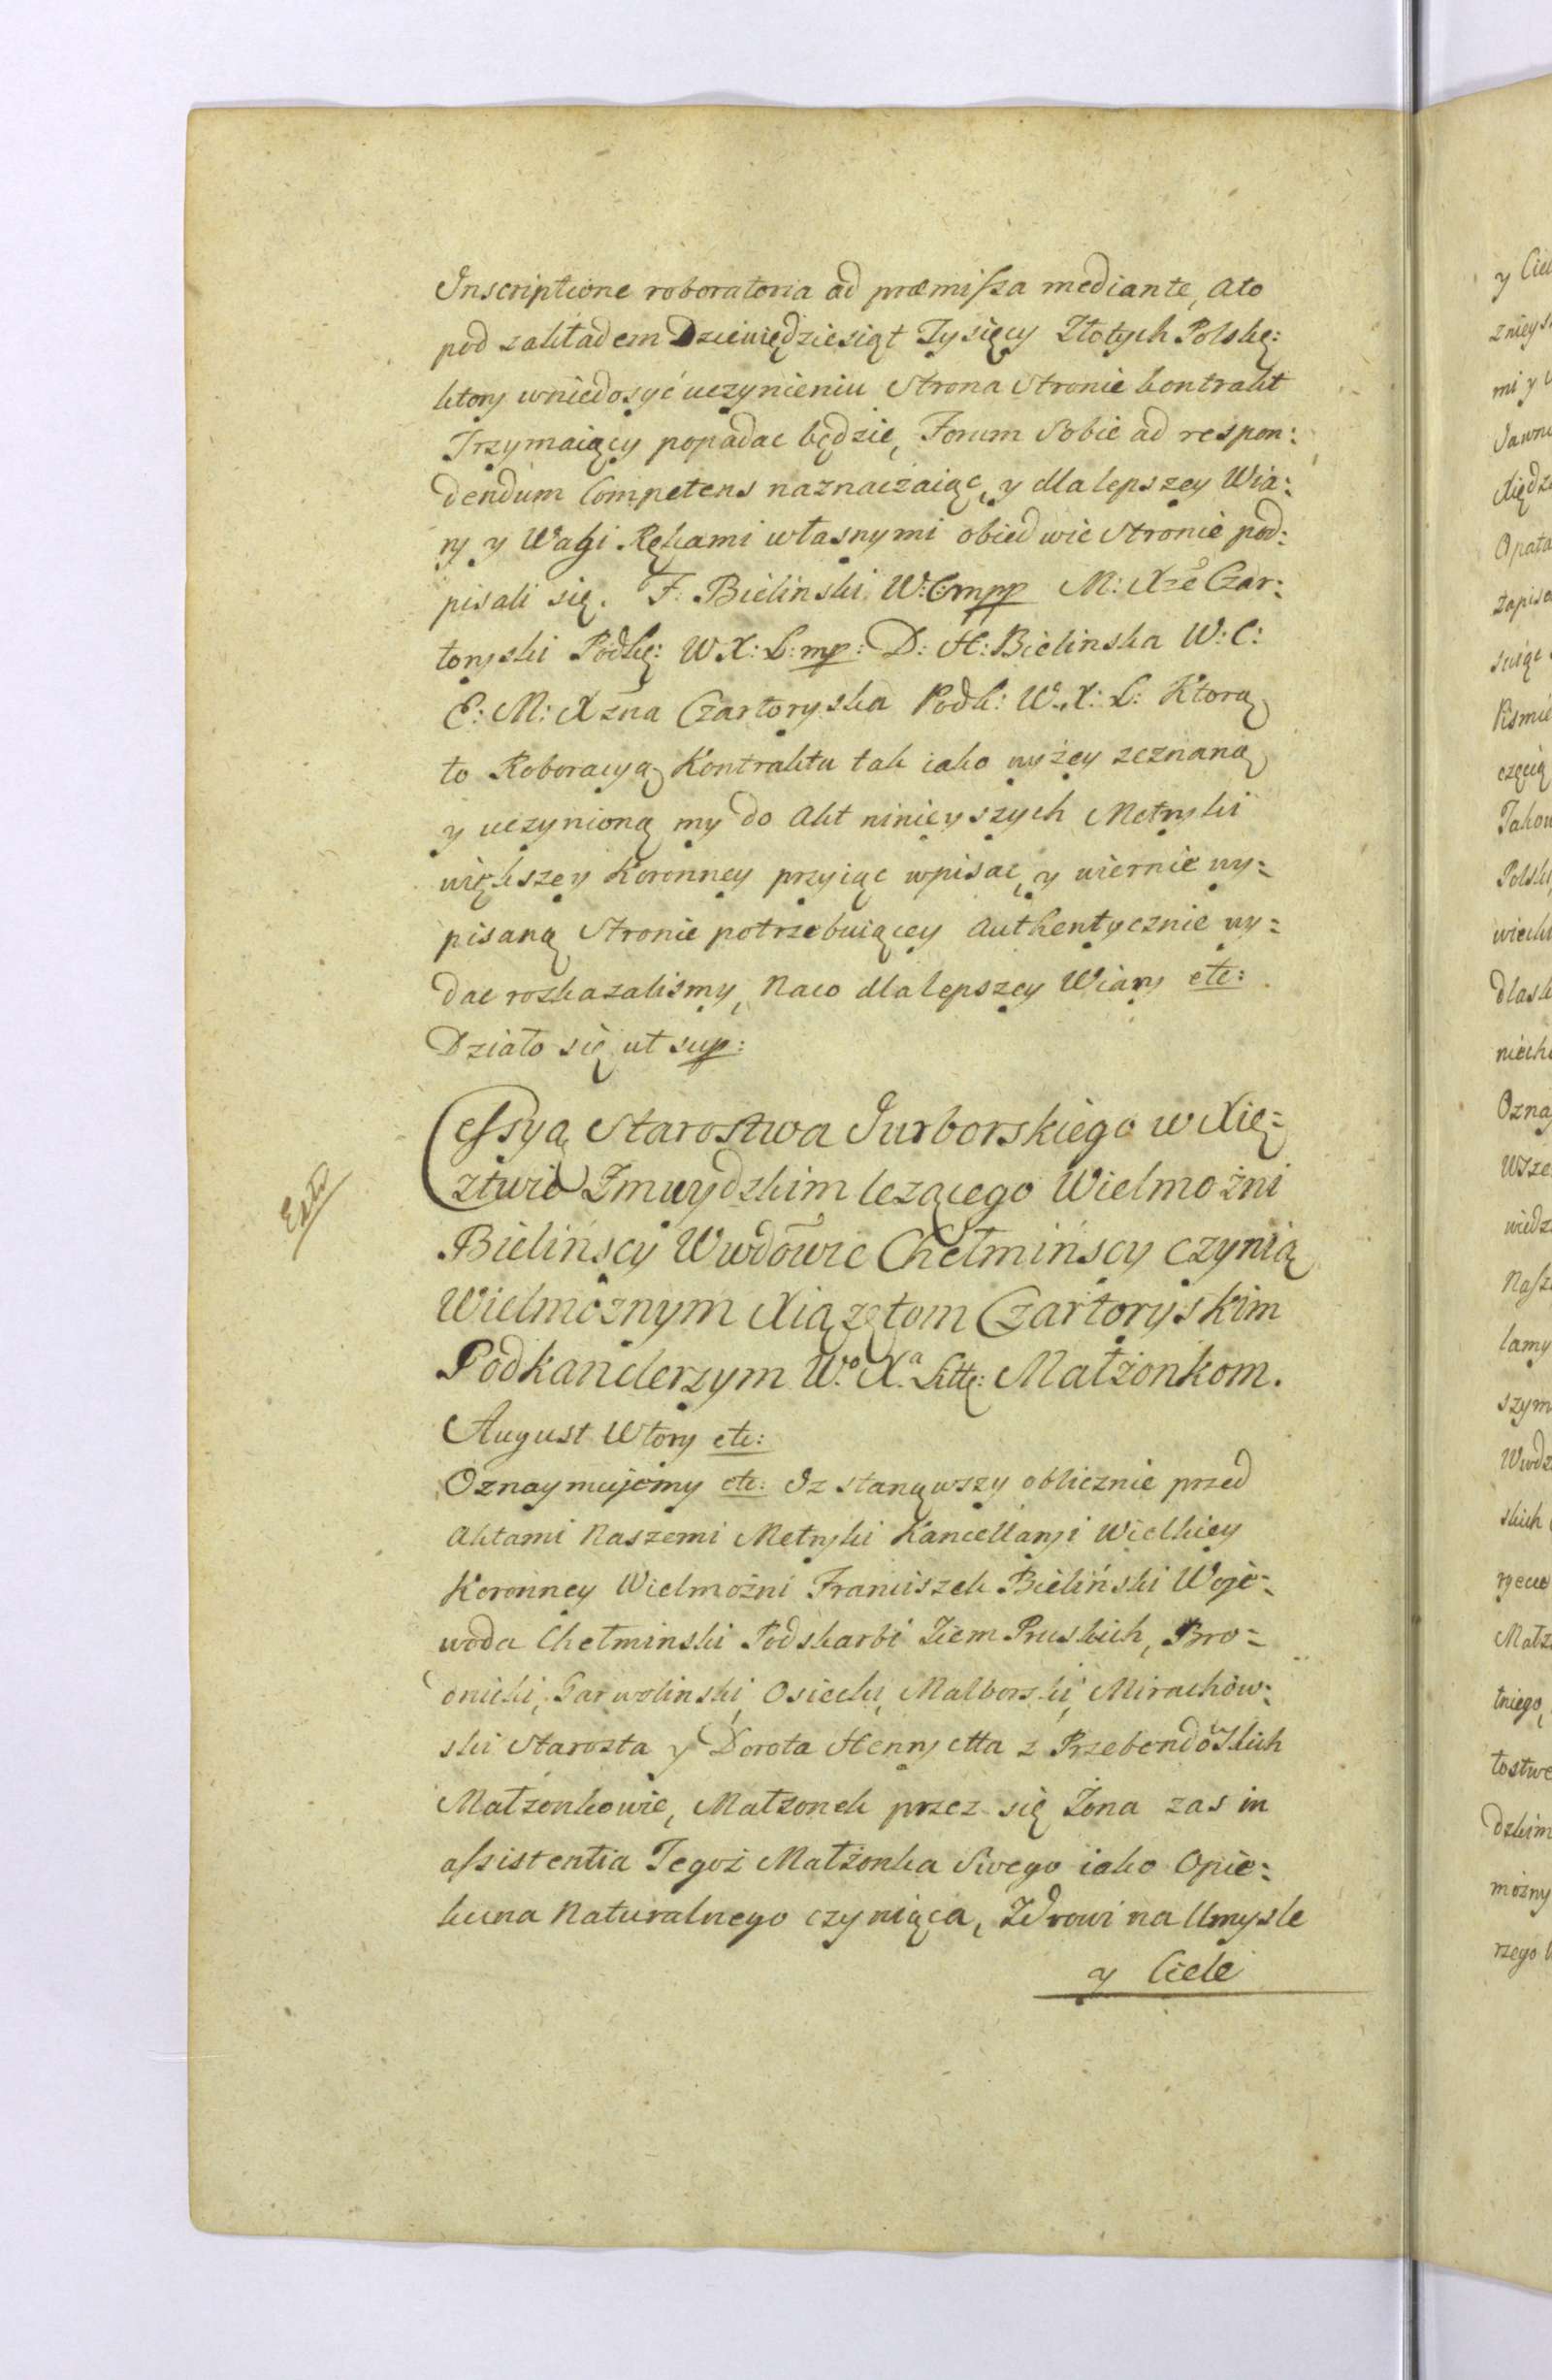 Inscriptione roboratoria ad præmissa mediante, ato
pod zakładem Dziewiędziesiąt Tysięcy Złotych Polskę:
ktory wniedosyć uczynieniu Strona Stronie kontrakt
Trzymaiący popadac będzie, Forum Sobie ad respon:
dendum Competens naznaczaiąc, y dla lepszey Wia:
ry y Wagi Rękami własnymi obiedwie Stronie pod:
pisali się. F: Bielinski W:C:mpp M: Xże Czar:
toryski Podkę: W X: L: mp: D: H: Bielinska W: C:
E: M: Xzna Czartoryska Podk: W.X: L: Ktorą
to Roboracyą Kontraktu tak iako wyżey zeznaną
y uczynioną my do Akt ninieyszych Metryki
większey Koronney przyiąc wpisac, y wiernie wy:
pisaną Stronie potrzebuiącey Authentycznie wy:
dac rozkazalismy, Naco dla lepszey Wiary etc:
Działo się ut sup:
Cessyą Starostwa Jurborskiego w Xię:
ztwie Zmuydzkim lezącego Wielmożni
Bielińscy Wwdowie Chełmińscy czynią
Wielmożnym Xiązętom Czartoryskim
Podkanclerzym W.º X.ª Littę: Małżonkom.
Exta
August Wtory etc:
Oznaymujemy etc: Iz stanąwszy oblicznie przed
Aktami Naszemi Metryki Kancellaryi Wielkiey
Koronney Wielmożni Franciszek Bieliński Woje:
woda Chełminski Podskarbi Ziem Pruskich, Bro:
dnicki, Garwolinski, Osiecki, Malborski, Mirachow:
ski Starosta y Dorota Hennryetta z Przebendowskich
Małzonkowie, Małzonek przez się Żona zas in
assistentia Tegoż Małżonka Swego iako Opie:
kuna Naturalnego czyniąca, Zdrowi na Umysle
y Ciele